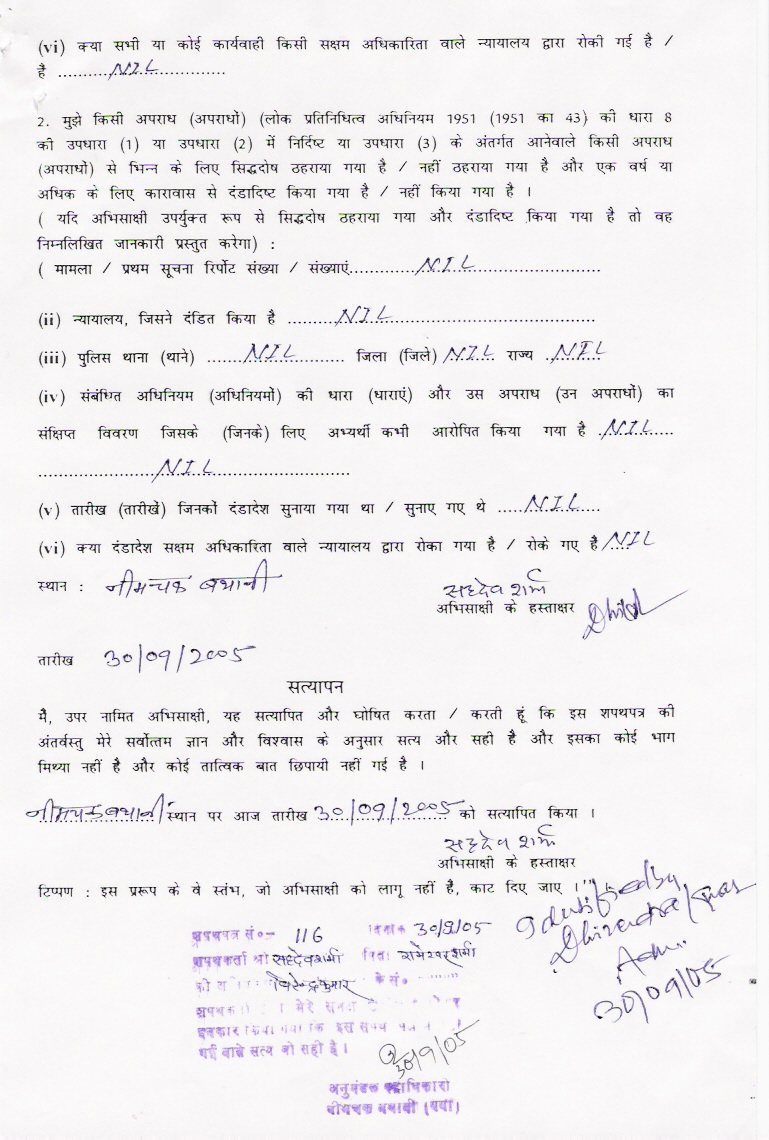 (vi) क्या सभी या कोई कार्यवाही किसी सक्षम अधिकारिता वाले न्यायालय द्वारा रोकी गई है /
है ..........NIL..............
2. मुझे किसी अपराध (अपराधों) (लोक प्रतिनिधित्व अधिनियम 1951 (1951 का 43) की धारा 8
की उपधारा (1) या उपधारा (2) में निर्दिष्ट या उपधारा (3) के अंतर्गत आनेवाले किसी अपराध
(अपराधों) से भिन्न के लिए सिद्धदोष ठहराया गया है / नहीं ठहराया गया है और एक वर्ष या
अधिक के लिए कारावास से दंडादिष्ट किया गया है / नहीं किया गया है ।
( यदि अभिसाक्षी उपर्युक्त रूप से सिद्धदोष ठहराया गया और दंडादिष्ट किया गया है तो वह
निम्नलिखित जानकारी प्रस्तुत करेगा) :
( मामला / प्रथम सूचना रिर्पोट संख्या / संख्याएं............NIL......................
(ii) न्यायालय, जिसने दंडित किया है .........NIL....................................
(iii) पुलिस थाना (थाने) .......NIL......... जिला (जिले) NIL राज्य .NIL
(iv) संबंधित अधिनियम (अधिनियमों) की धारा (धाराएं) और उस अपराध (उन अपराधों) का
संक्षिप्त विवरण जिसके (जिनके) लिए अभ्यर्थी कभी आरोपित किया गया है .NIL....
......................NIL........................
(v) तारीख (तारीखें) जिनकों दंडादेश सुनाया गया था / सुनाए गए थे .....NIL....
(vi) क्या दंडादेश सक्षम अधिकारिता वाले न्यायालय द्वारा रोका गया है / रोके गए है NIL
स्थान : नीमचक बथानी
सहदेव शर्मा
अभिसाक्षी के हस्ताक्षर
तारीख 30/09/2005
सत्यापन
मै, उपर नामित अभिसाक्षी, यह सत्यापित और घोषित करता / करती हूं कि इस शपथपत्र की
अंतर्वस्तु मेरे सर्वोत्तम ज्ञान और विश्वास के अनुसार सत्य और सही है और इसका कोई भाग
मिथ्या नहीं है और कोई तात्विक बात छिपायी नहीं गई है ।
नीमचक बथानी स्थान पर आज तारीख 30/09/2005 को सत्यापित किया ।
सहदेव शर्मा
अभिसाक्षी के हस्ताक्षर
टिप्पण : इस प्ररूप के वे स्तंभ, जो अभिसाक्षी को लागू नहीं है, काट दिए जाए ।
Identified by
Dhirendra Kumar
Adv.
30/09/05
शपथपत्र सं०- 116 दिनांक 30/9/05
शपथकर्ता श्री सहदेव शर्मा पिता रामेश्वर शर्मा
मेरे समक्ष
इस शपथ
गई बातें सत्य वो सही है ।
30/9/05
अनुमंडल पदाधिकारी
नीमचक बथानी (गया)